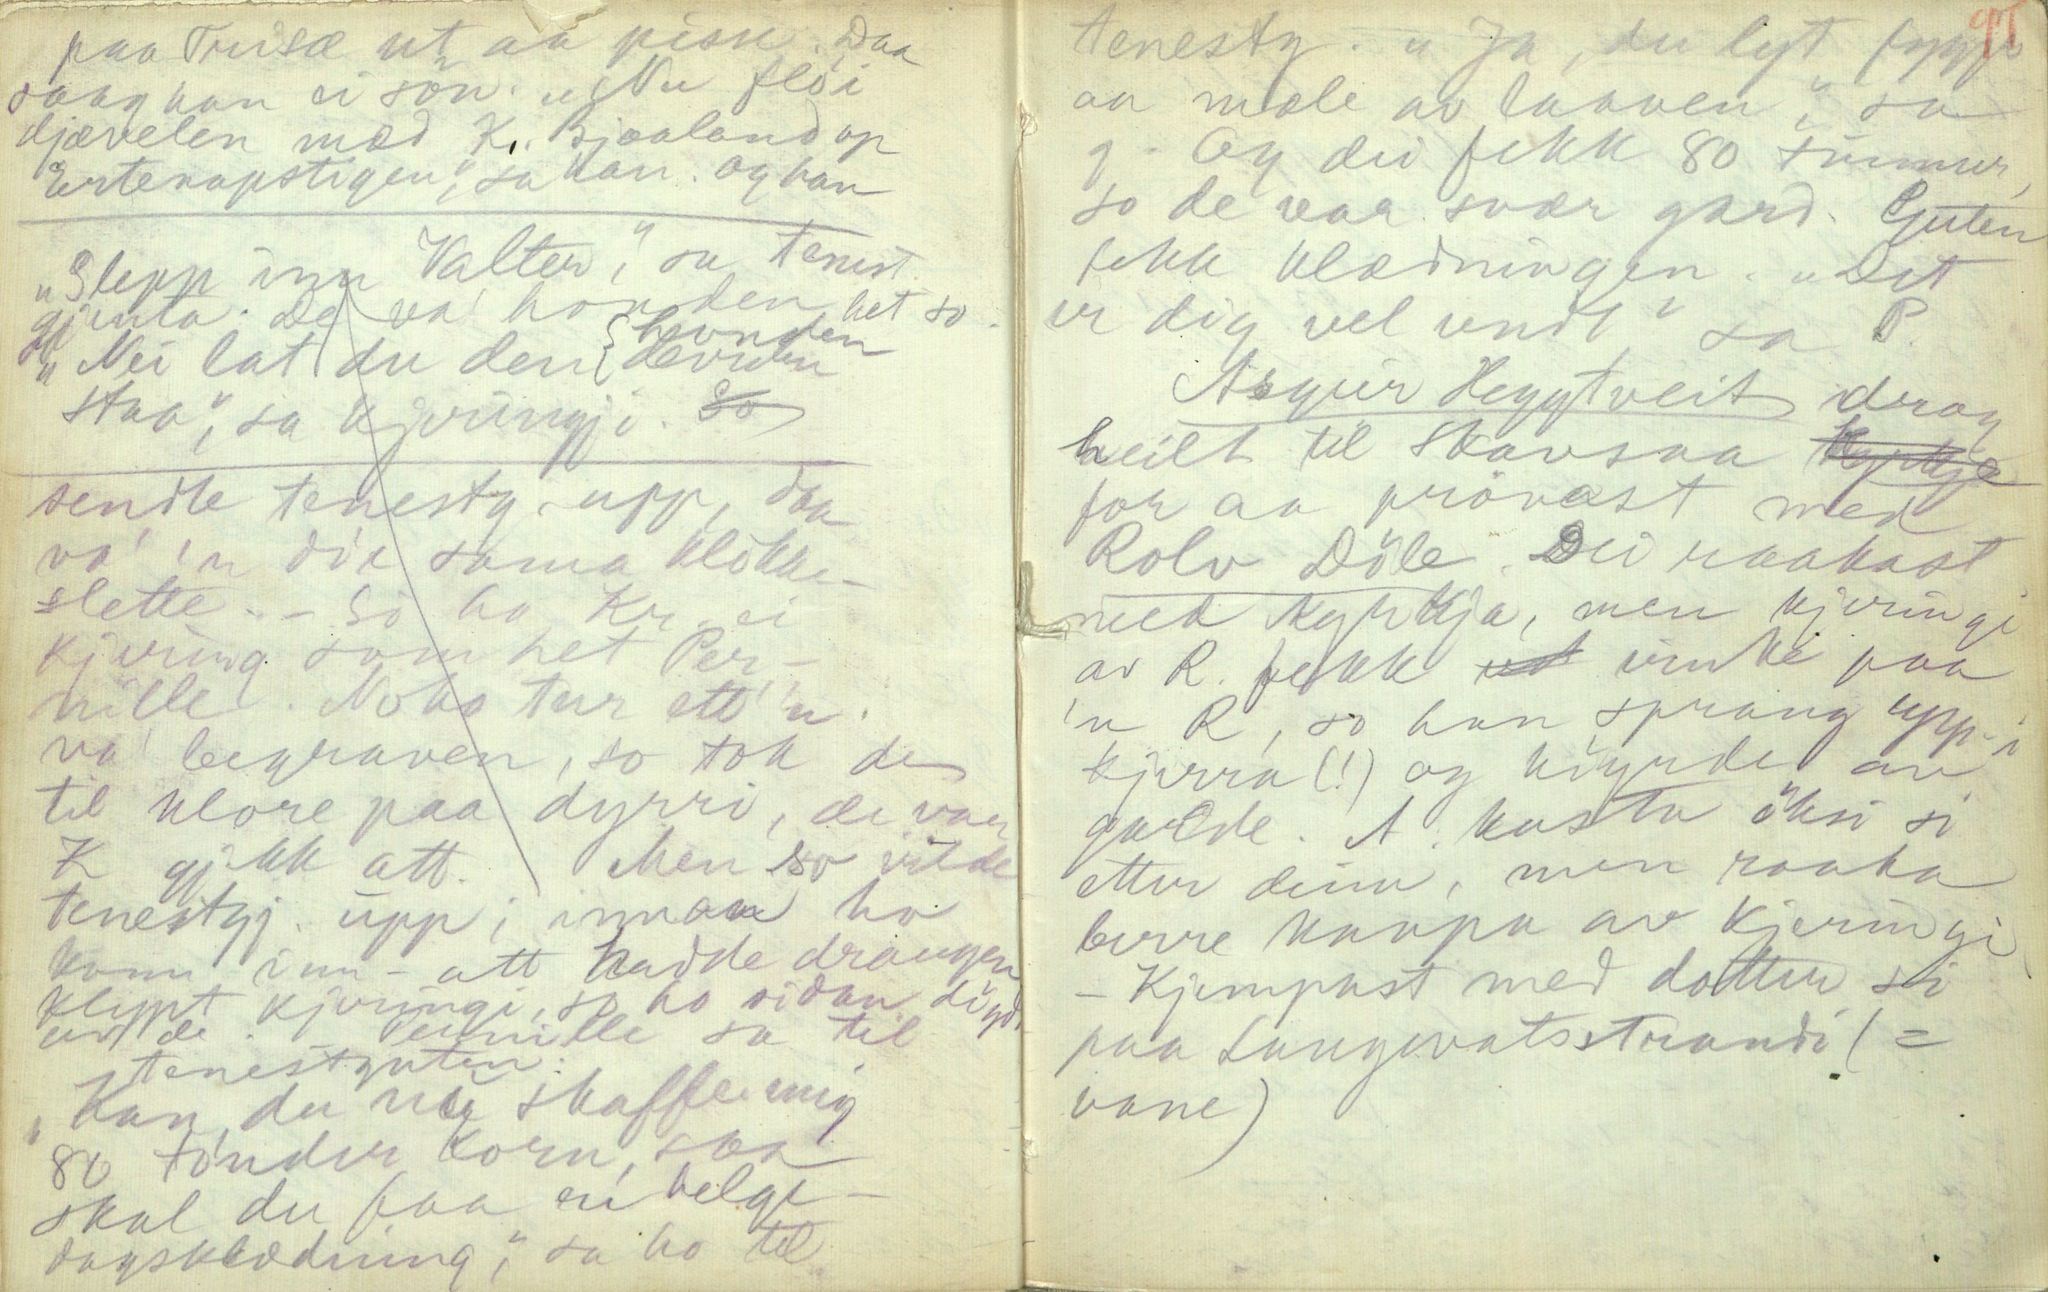 paa Trisæ ut aa pisse. Daa
saag han ei sŏn. "Nu flöi
djævelen med K. Bjaaland op
Ertenapstigen", sa han. og han
"Slepp inn Valter," sa tenest
gjenta. De va' hounden het so.
"Nei lat du den { hounden
devulen
staa", sa kjeringji. So
sendte tenestg. upp, daa
va' 'n död sama klokke-
slette. - So ha Kr. ei
kjering som het Per-
nille. Noko tur ett 'n
va' begraven, so tok de
til klore paa dyrri, de var
K gjikk att. Men so vilde
tenestgj. upp; innan ho
kom inn - att hadde draugen
klypt kjeringi, so ho sidan döyd
av de. Pernille sa til
tenestguten:
"Kan du nu skaffe mig
80 tönder korn, saa
skal du faa ei helge-
dagsklædning," sa ho til
97
tenestg. "Ja, du lyt byggje
aa mæle av laaven," sa
g. Og dei fekk 80 tunnur,
so de var svær gard. Guten
fekk klædningen. "Det
er dig vel undt" sa P.
Asgeir Heggtveit drog
heilt til Skavsaa Kyrkje
for aa prövast med
Rolv Döle. Dei raakast
med kyrkja, men kjeringi
av R. fekk vinke paa
'n R, so han sprang upp-i
kjerra (!) og köyrde av
garde. A. kasta öksi si
etter deim, men raaka
berre kaapa av kjeringi.
- Kjempast med dotter si
paa Langevatsstrandi (=
vane)